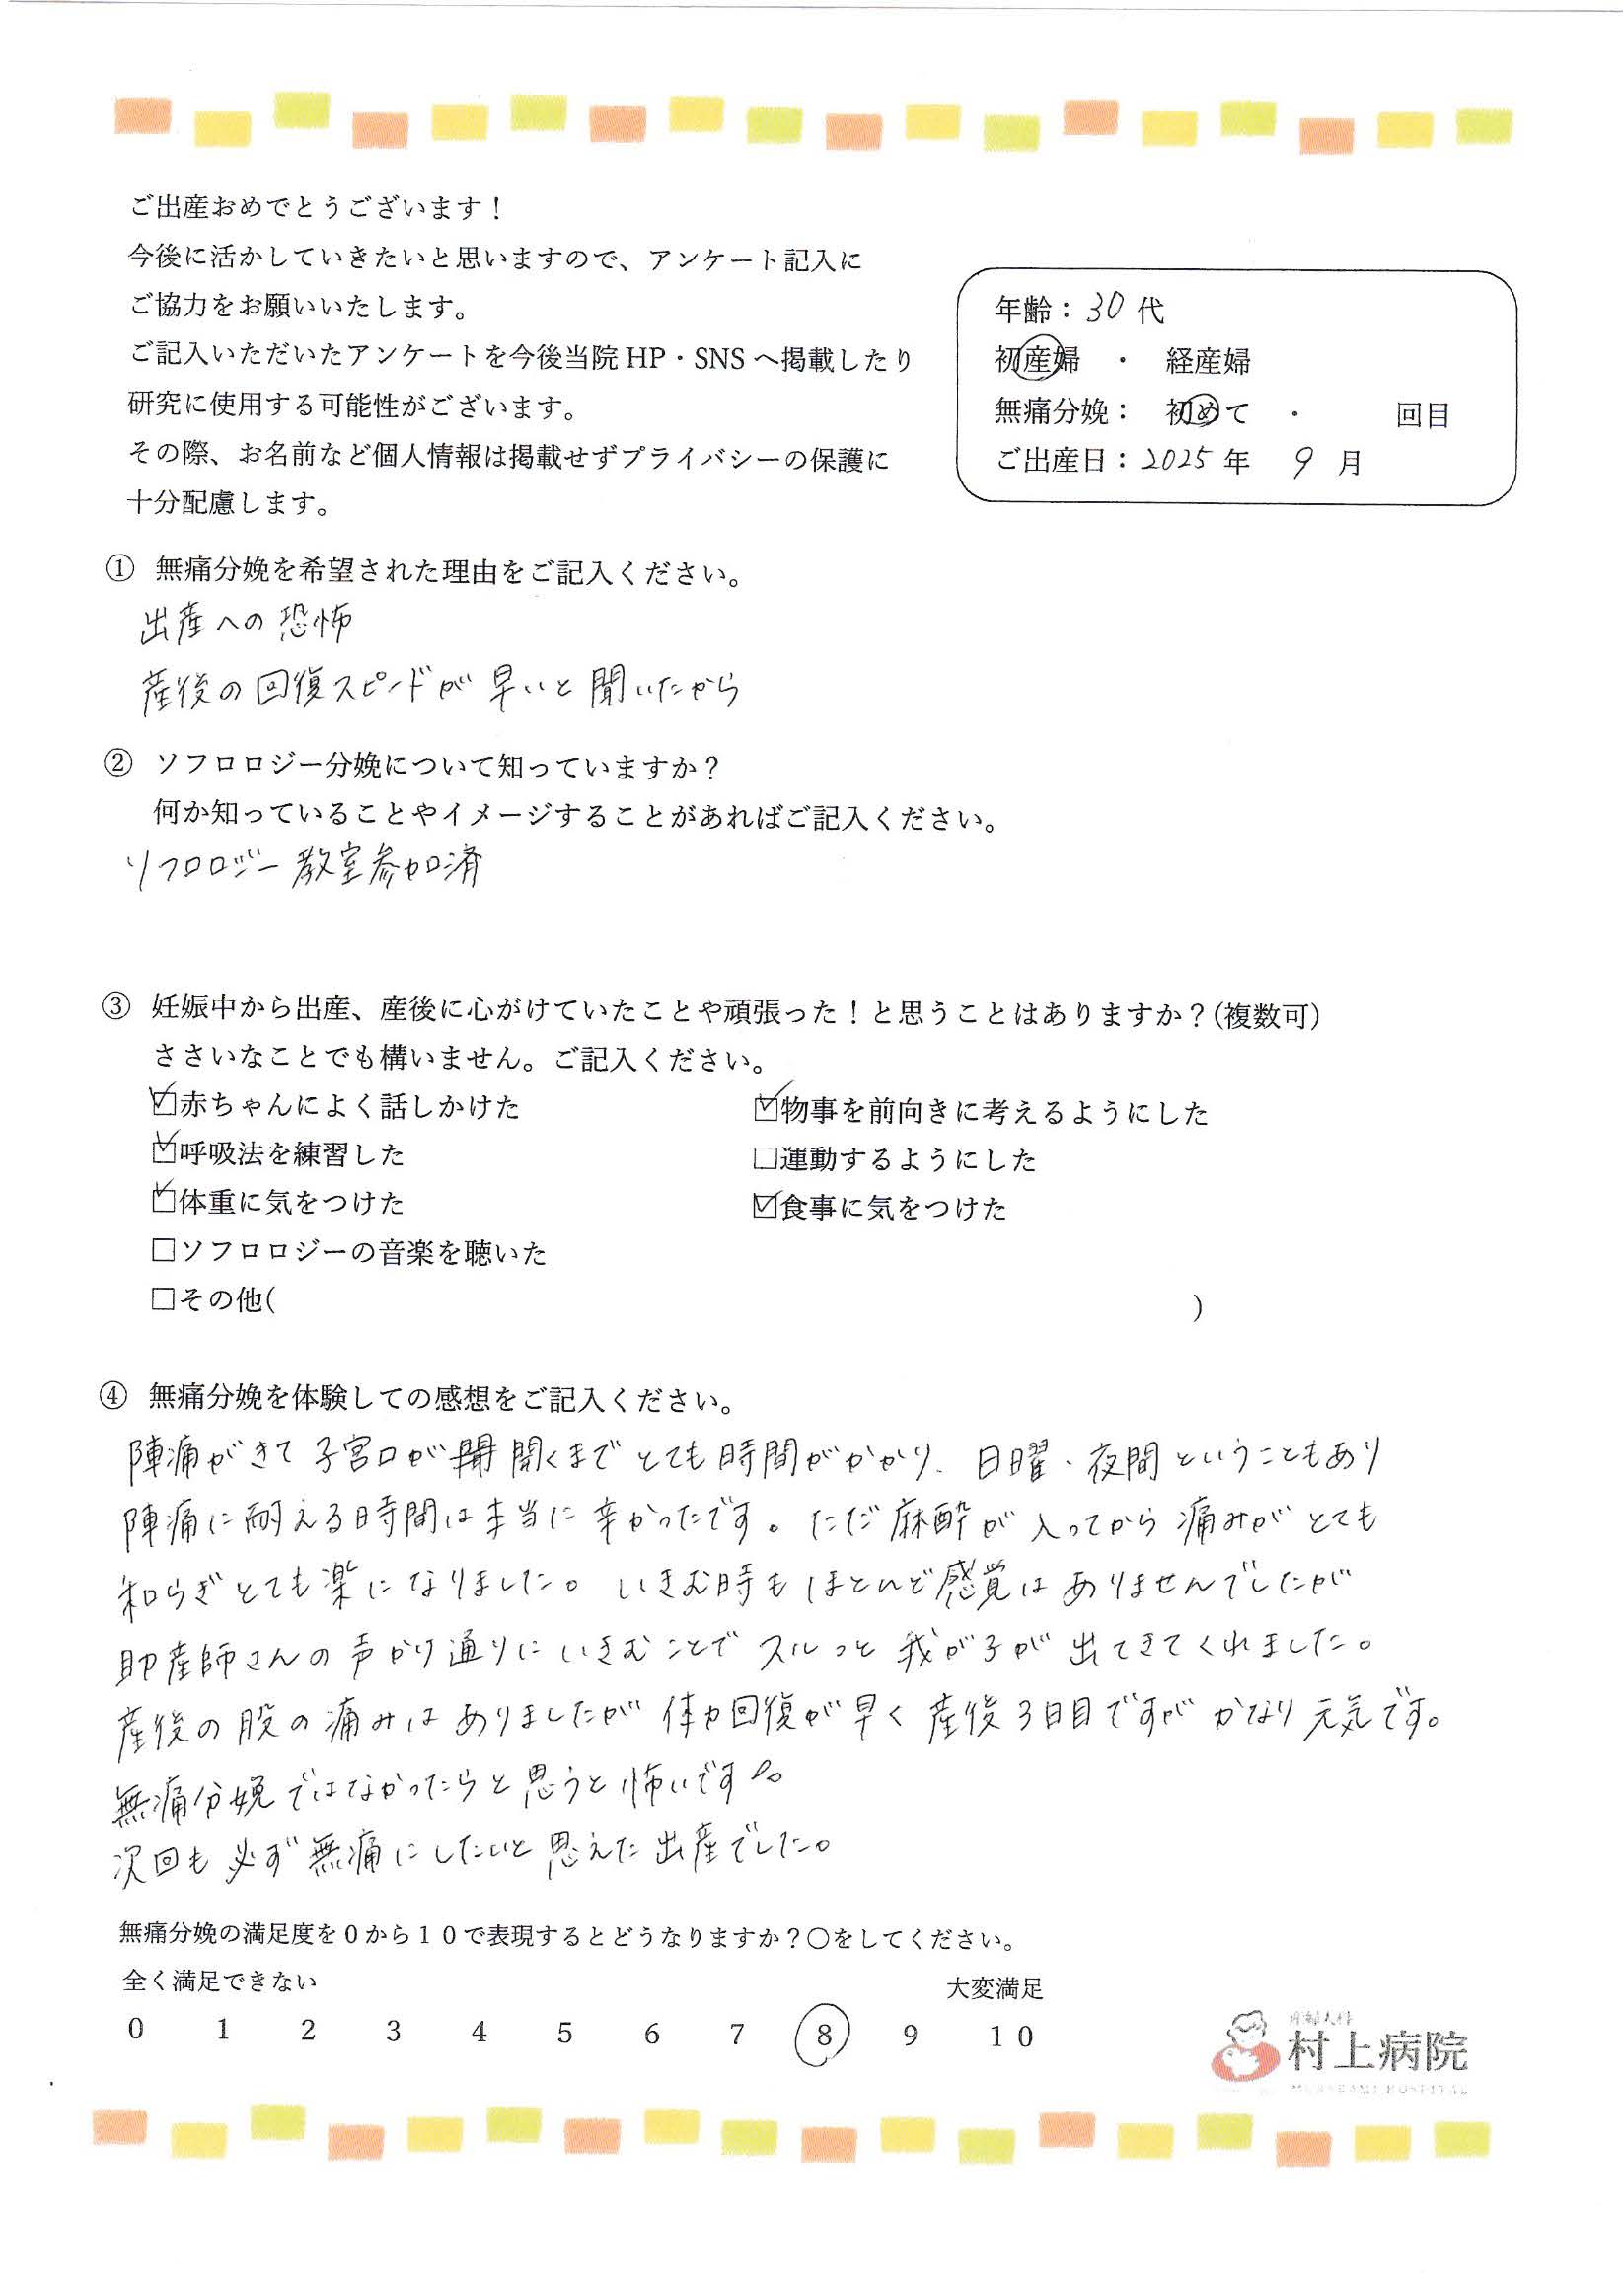 ご出産おめでとうございます！
今後に活かしていきたいと思いますので、アンケート記入に
ご協力をお願いいたします。
ご記入いただいたアンケートを今後当院 HP・SNS へ掲載したり
研究に使用する可能性がございます。
その際、お名前など個人情報は掲載せずプライバシーの保護に
十分配慮します。
年齢：30 代
初産婦 ・ 経産婦
無痛分娩： 初めて ・ 回目
ご出産日：2025 年 9 月
① 無痛分娩を希望された理由をご記入ください。
出産への恐怖
産後の回復スピードが早いと聞いたから
② ソフロロジー分娩について知っていますか？
何か知っていることやイメージすることがあればご記入ください。
ソフロロジー教室参加済
③ 妊娠中から出産、産後に心がけていたことや頑張った！と思うことはありますか？(複数可)
ささいなことでも構いません。ご記入ください。
☑赤ちゃんによく話しかけた ☑物事を前向きに考えるようにした
☑呼吸法を練習した □運動するようにした
☑体重に気をつけた ☑食事に気をつけた
□ソフロロジーの音楽を聴いた
□その他( )
④ 無痛分娩を体験しての感想をご記入ください。
陣痛がきて子宮口が開くまでとても時間がかかり、日曜・夜間ということもあり
陣痛に耐える時間は本当に辛かったです。ただ麻酔が入ってから痛みがとても
和らぎとても楽になりました。いきむ時もほとんど感覚はありませんでしたが
助産師さんの声かけ通りにいきむことでスルっと我が子が出てきてくれました。
産後の股の痛みはありましたが体力回復が早く産後3日目ですがかなり元気です。
無痛分娩ではなかったらと思うと怖いです。
次回も必ず無痛にしたいと思えた出産でした。
無痛分娩の満足度を０から１０で表現するとどうなりますか？〇をしてください。
全く満足できない 大変満足
0 1 2 3 4 5 6 7 8 9 10
産婦人科
村上病院
MURAKAMI HOSPITAL